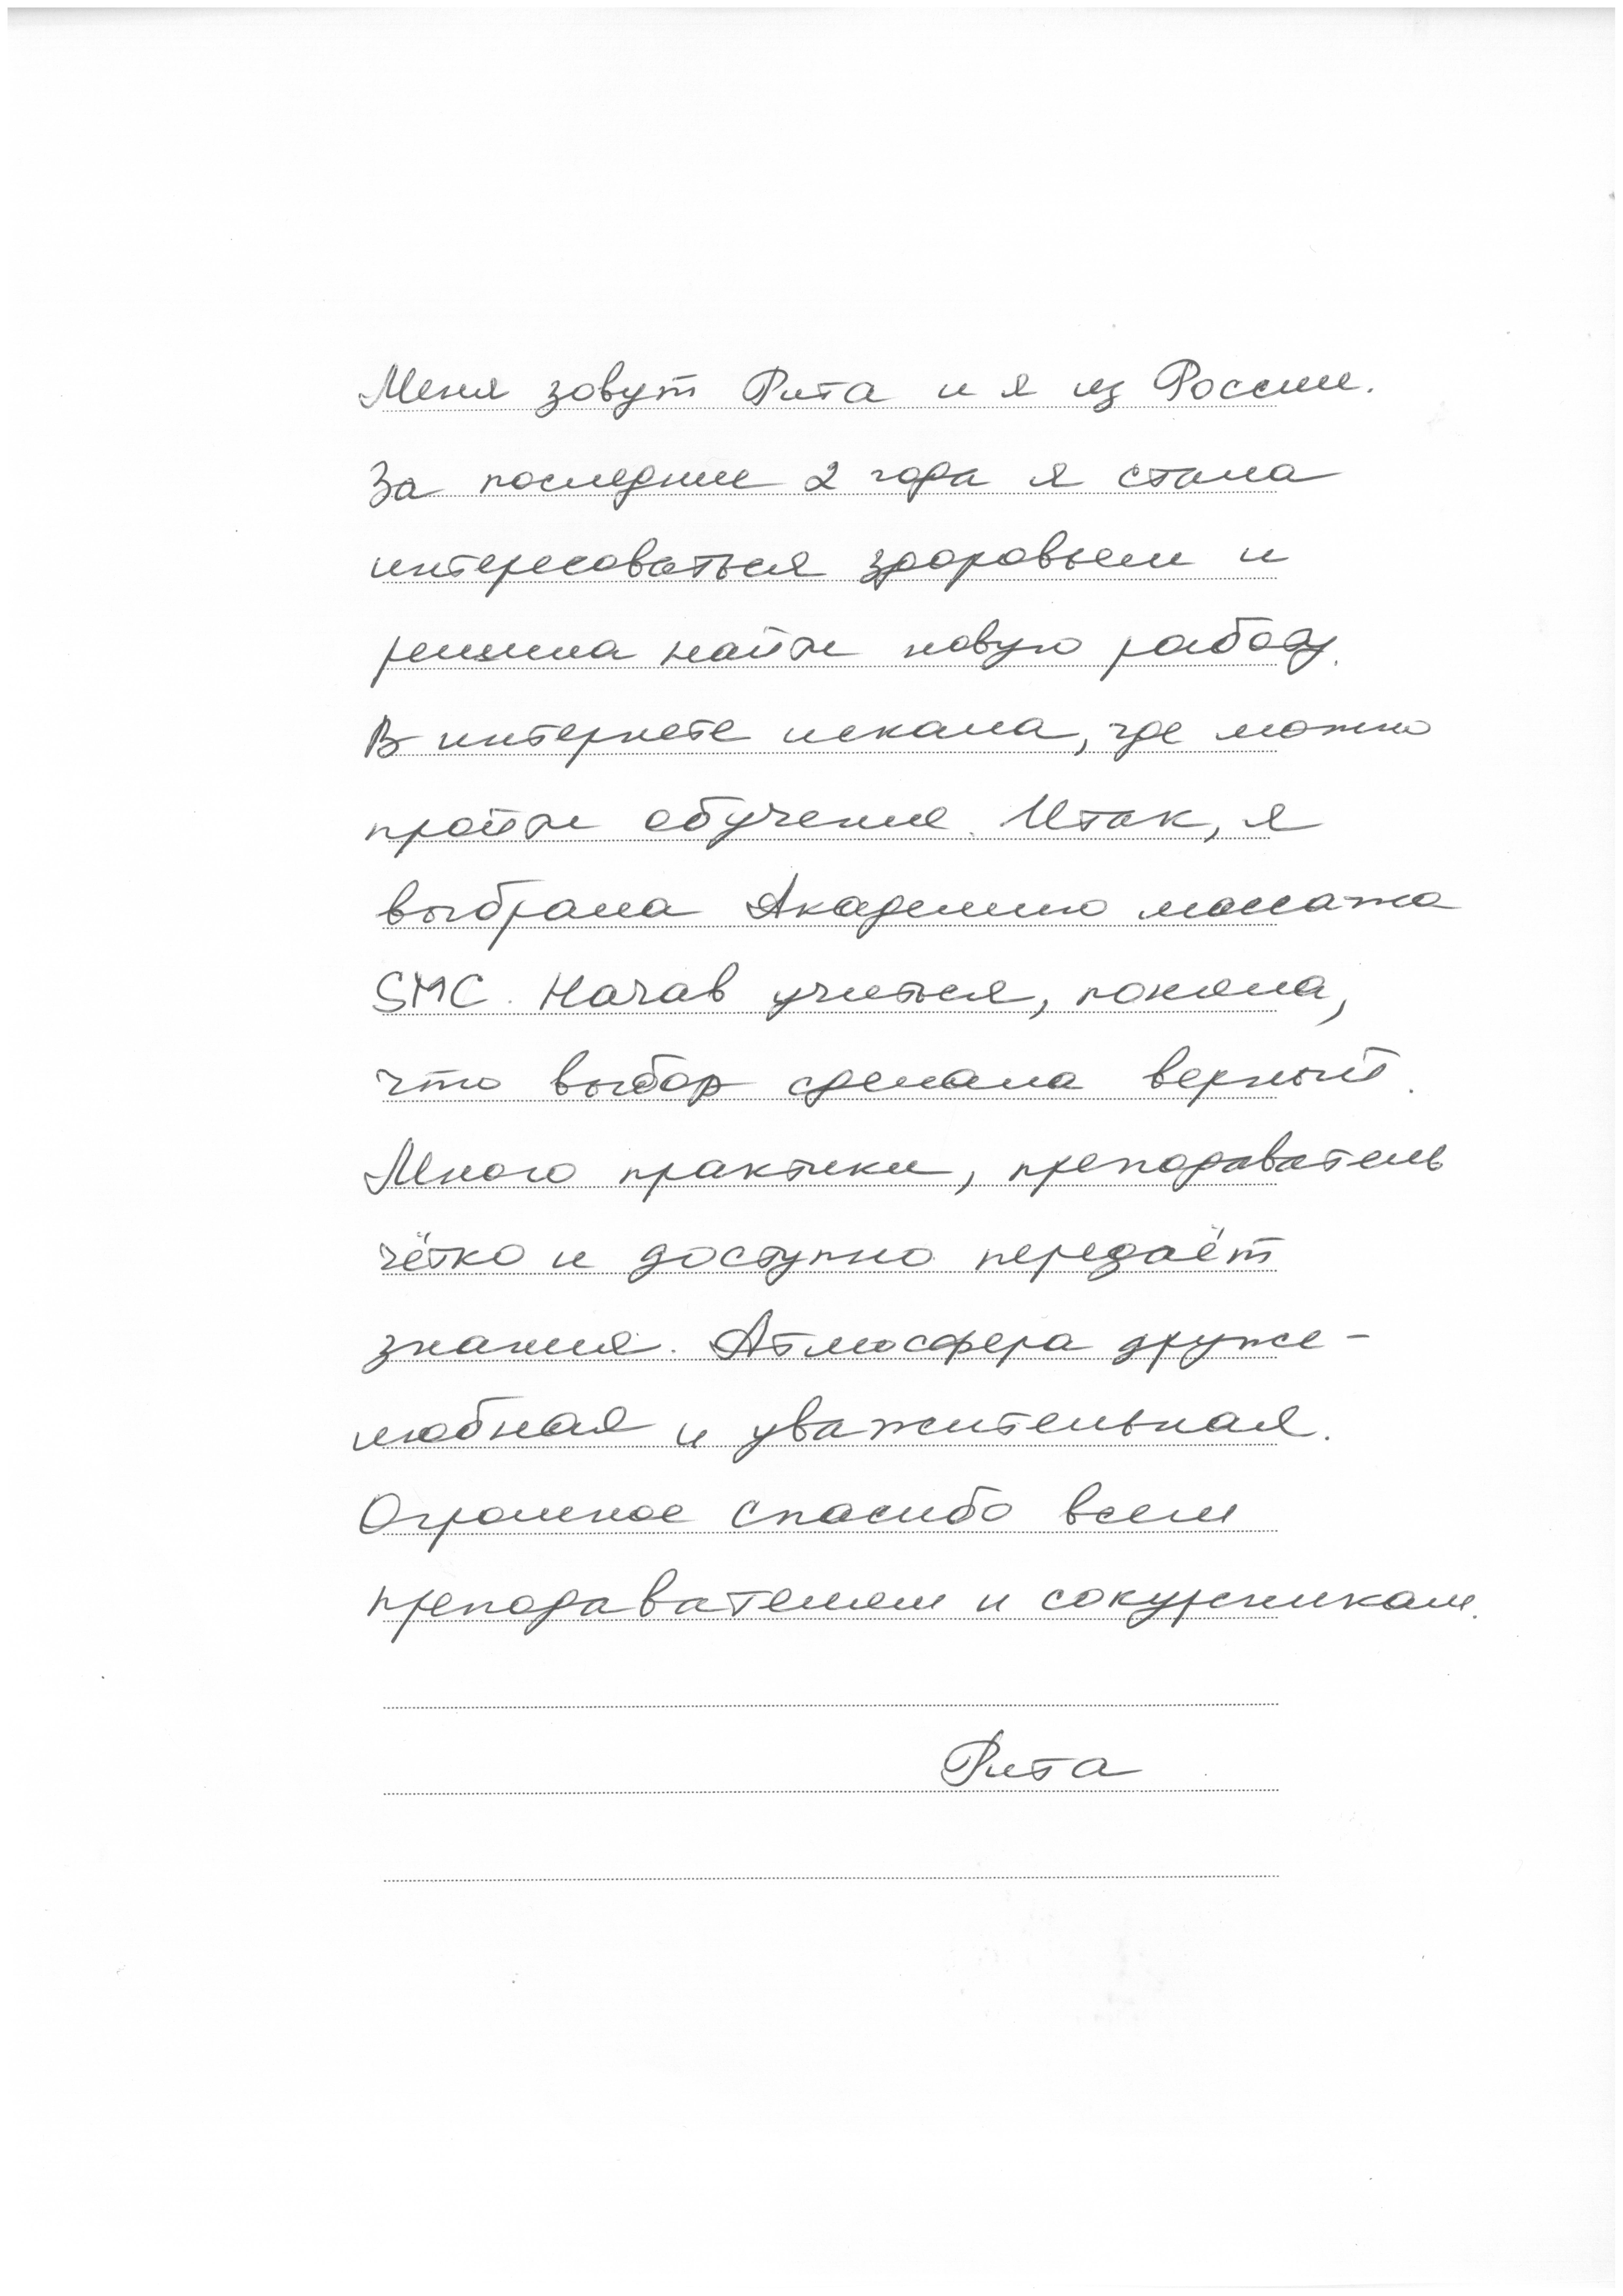 Меня зовут Рита и я из России.
За последние 2 года я стала
интересоваться здоровьем и
решила найти новую работу.
В интернете искала, где можно
пройти обучение. Итак, я
выбрала Академию массажа
SMC. Начав учиться, поняла,
что выбор сделала верный.
Много практики, преподаватель
чётко и доступно передаёт
знания. Атмосфера друже-
любная и уважительная.
Огромное спасибо всем
преподавателям и сокурсникам.
Рита